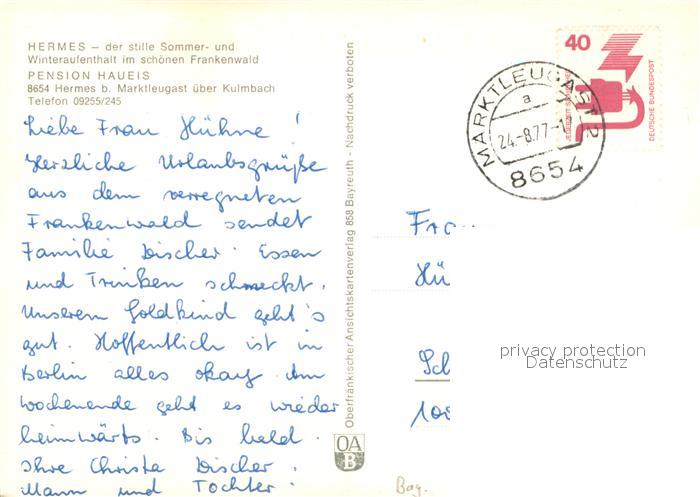 HERMES – der stille Sommer- und
Winteraufenthalt im schönen Frankenwald
PENSION HAUEIS
8654 Hermes b. Marktleugast über Kulmbach
Telefon 09255/245
Liebe Frau Hühne!
Herzliche Urlaubsgrüße
aus dem verregneten
Frankenwald sendet
Familie Discher. Essen
und Trinken schmeckt.
Unserem Goldkind geht's
gut. Hoffentlich ist in
Berlin alles okay. Am
Wochenende geht es wieder
heimwärts. Bis bald.
Ihre Christa Discher.
Mann und Tochter.
Oberfränkischer Ansichtskartenverlag 858 Bayreuth - Nachdruck verboten
OA
B
40
JEDERZEIT SICHERHEIT
DEUTSCHE BUNDESPOST
MARKTLEUGAST 2
a
24.-8.77-1
8654
Fra
Hü
Sch
100
privacy protection
Datenschutz
Bay.